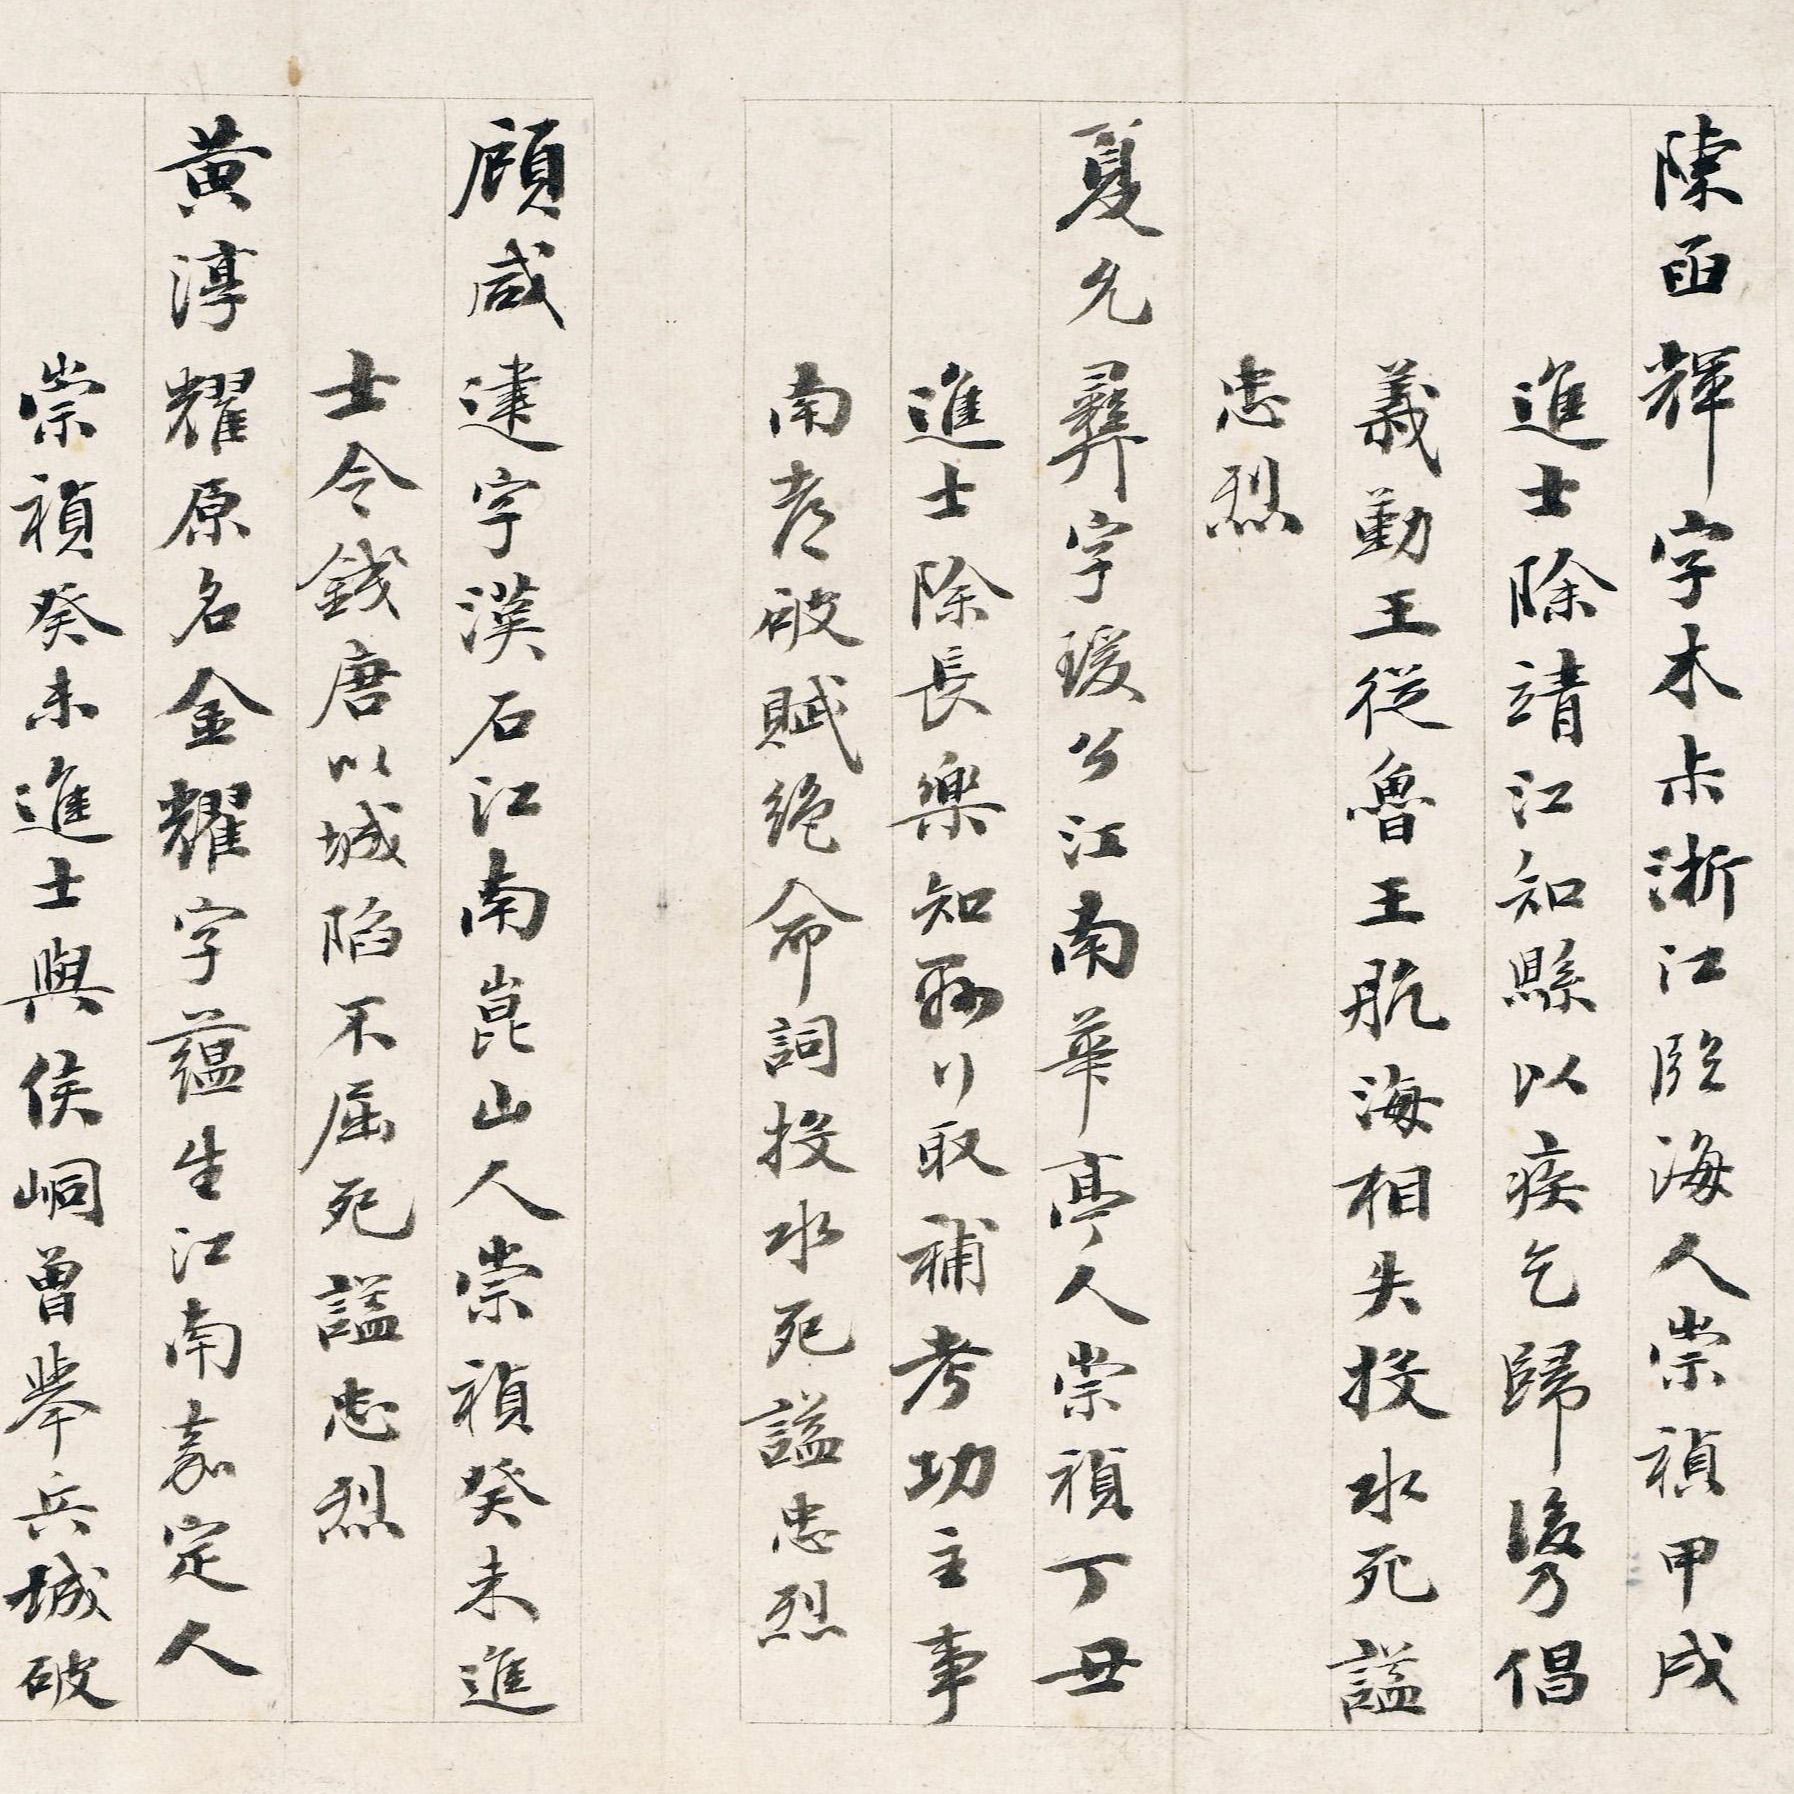 陳函輝字木未浙江臨海人崇禎甲戌
進士除靖江知縣以疾乞歸後乃倡
義勤王從魯王航海相失投水死謚
忠烈
夏允彝字瑗公江南華亭人崇禎丁丑
進士除長樂知縣行取補考功主事
南都破賦絶命詞投水死謚忠烈
顧咸建字漢石江南崑山人崇禎癸未進
士令錢唐以城陷不屈死謚忠烈
黃淳耀原名金耀字蘊生江南嘉定人
崇禎癸未進士與侯峒曾舉兵城破